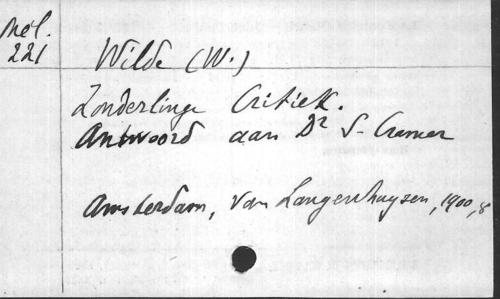 Mél.
221
Wilde (W.)
Zonderlinge Critiek.
Antwoord aan Dr S. Cramer
Amsterdam, Van Langenhuysen, 1900, 8